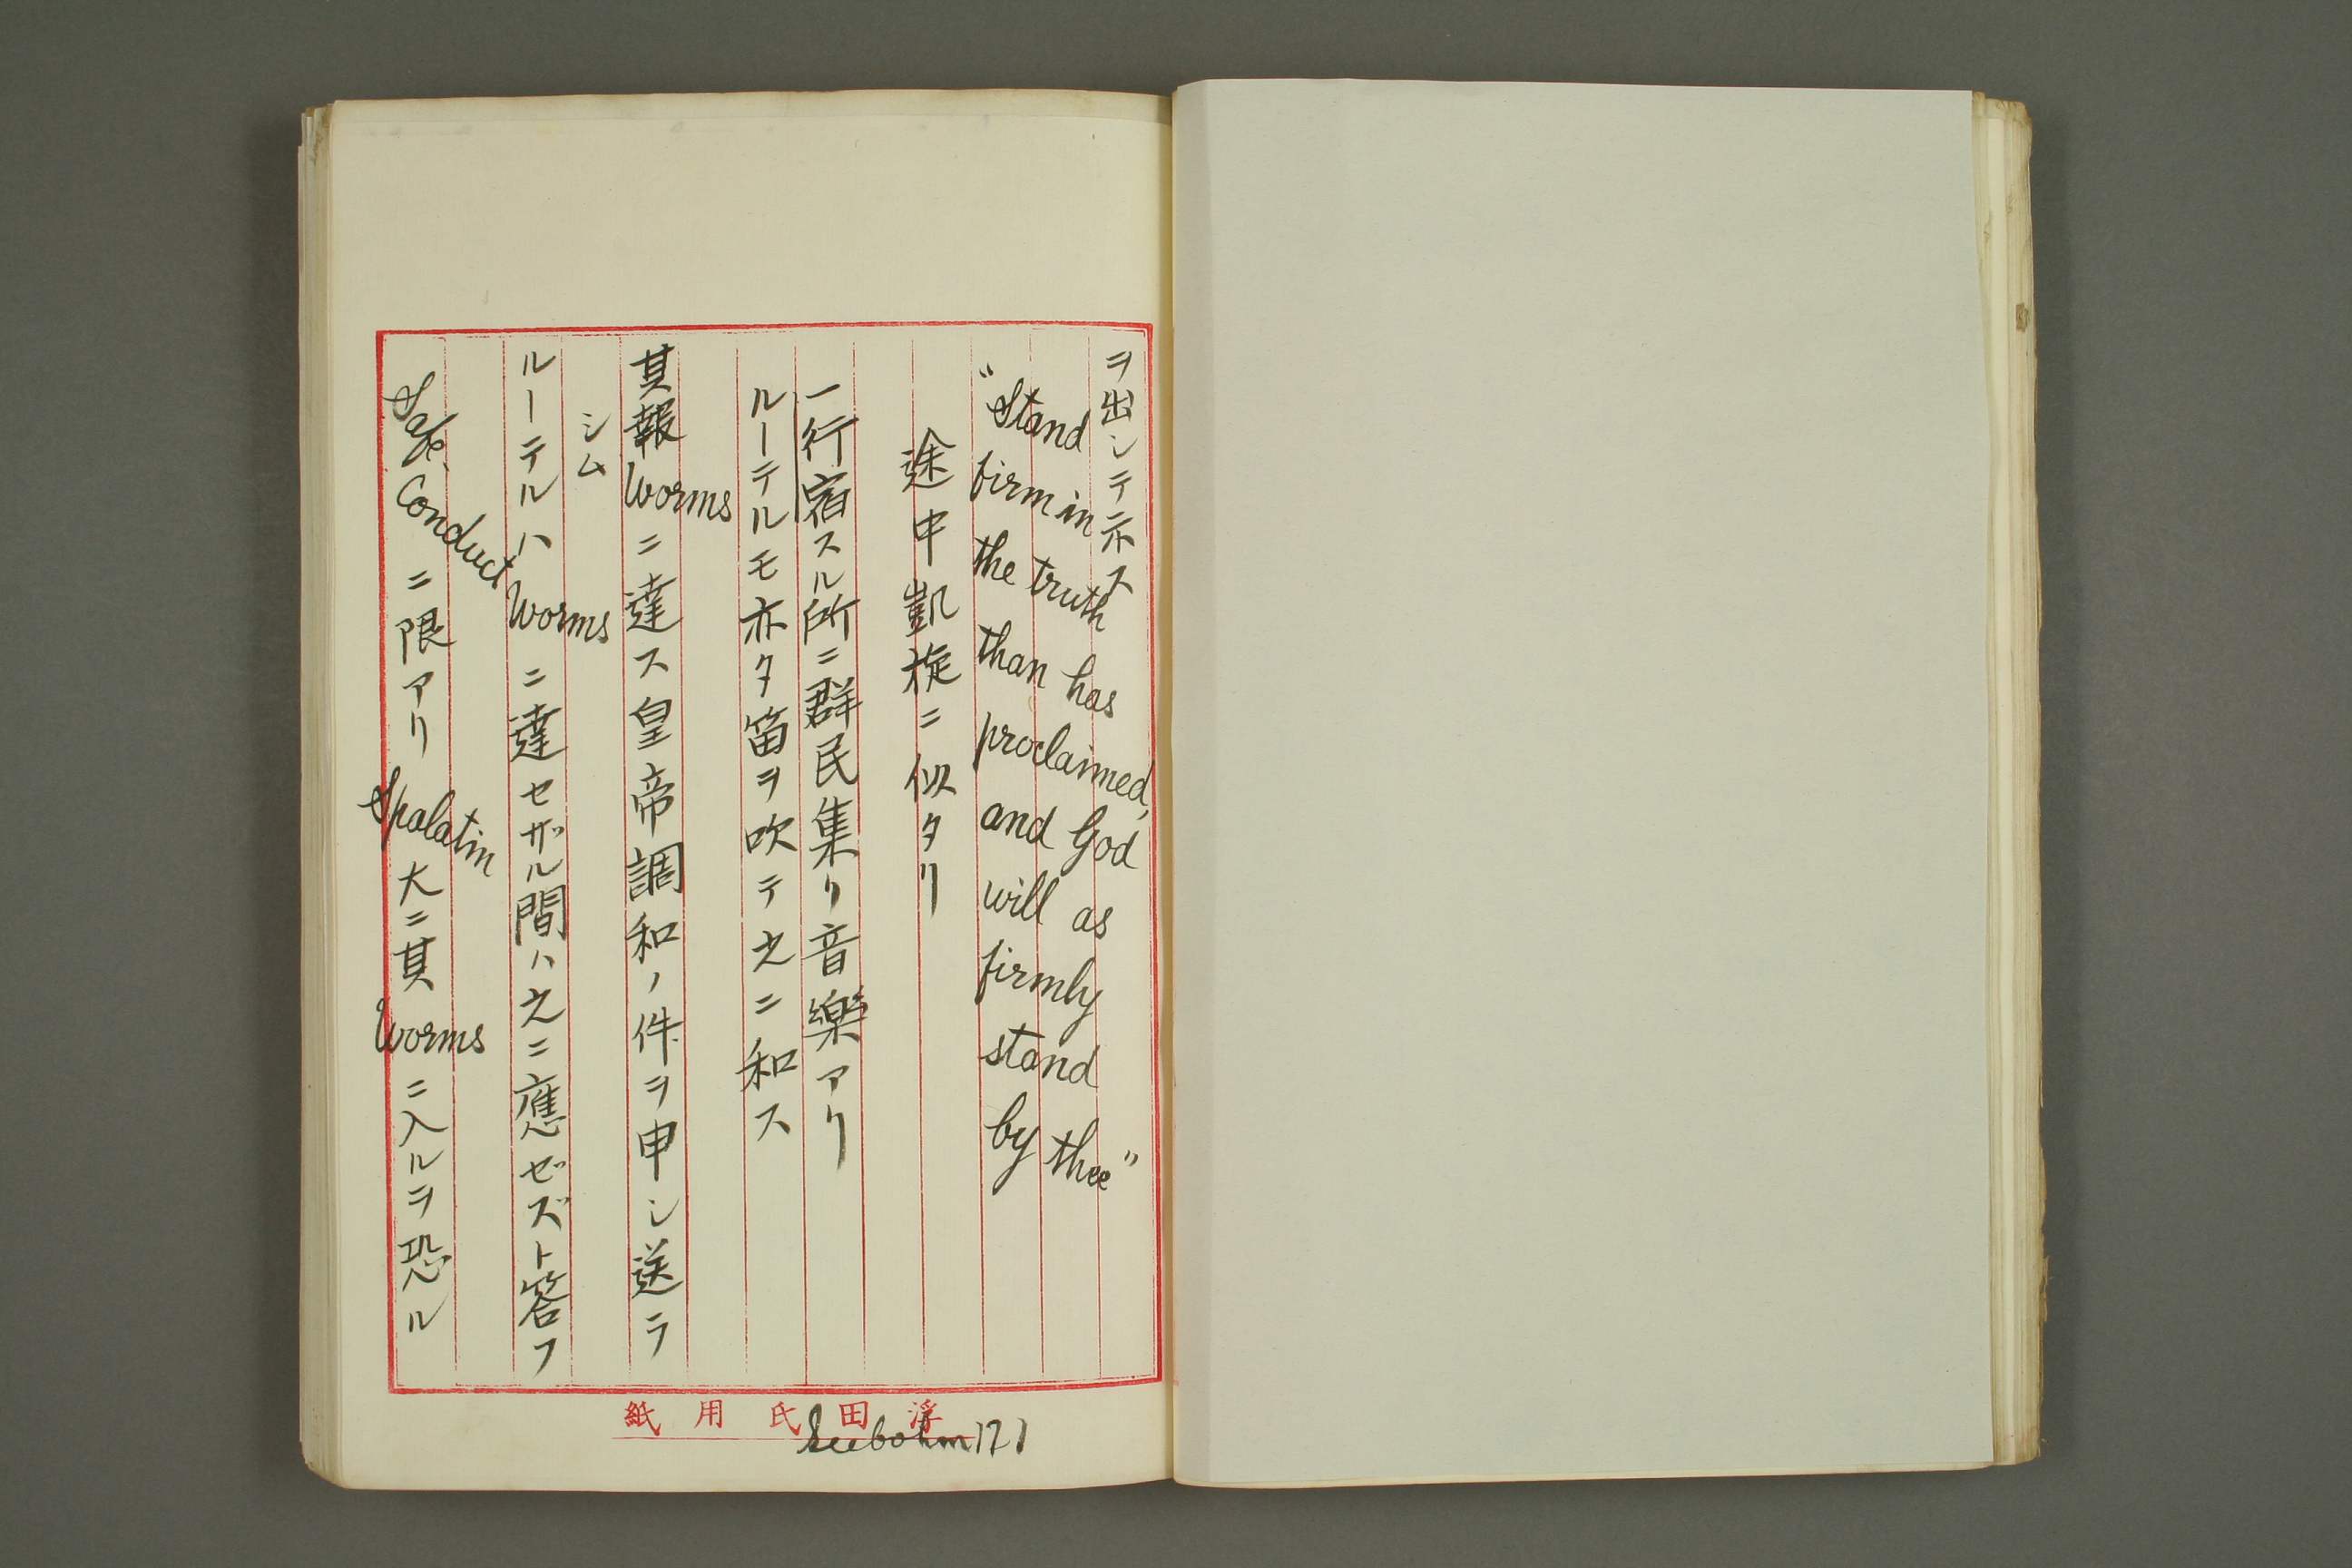 ヲ出シテ示ス
"Stand
firm in
the truth
than has
proclaimed,
and God
will as
firmly
stand
by thee"
途中凱旋ニ似タリ
一行宿スル所ニ群民集リ音樂アリ
ルーテルモ亦タ笛ヲ吹テ之ニ和ス
其報Wormsニ達ス皇帝調和ノ件ヲ申シ送ラ
シム
ルーテルハWormsニ達セザル間ハ之ニ應ゼズト答フ
Safe Conductニ限アリSpalatin大ニ其Wormsニ入ルヲ恐ル
浮田氏用紙
Seebohm 171